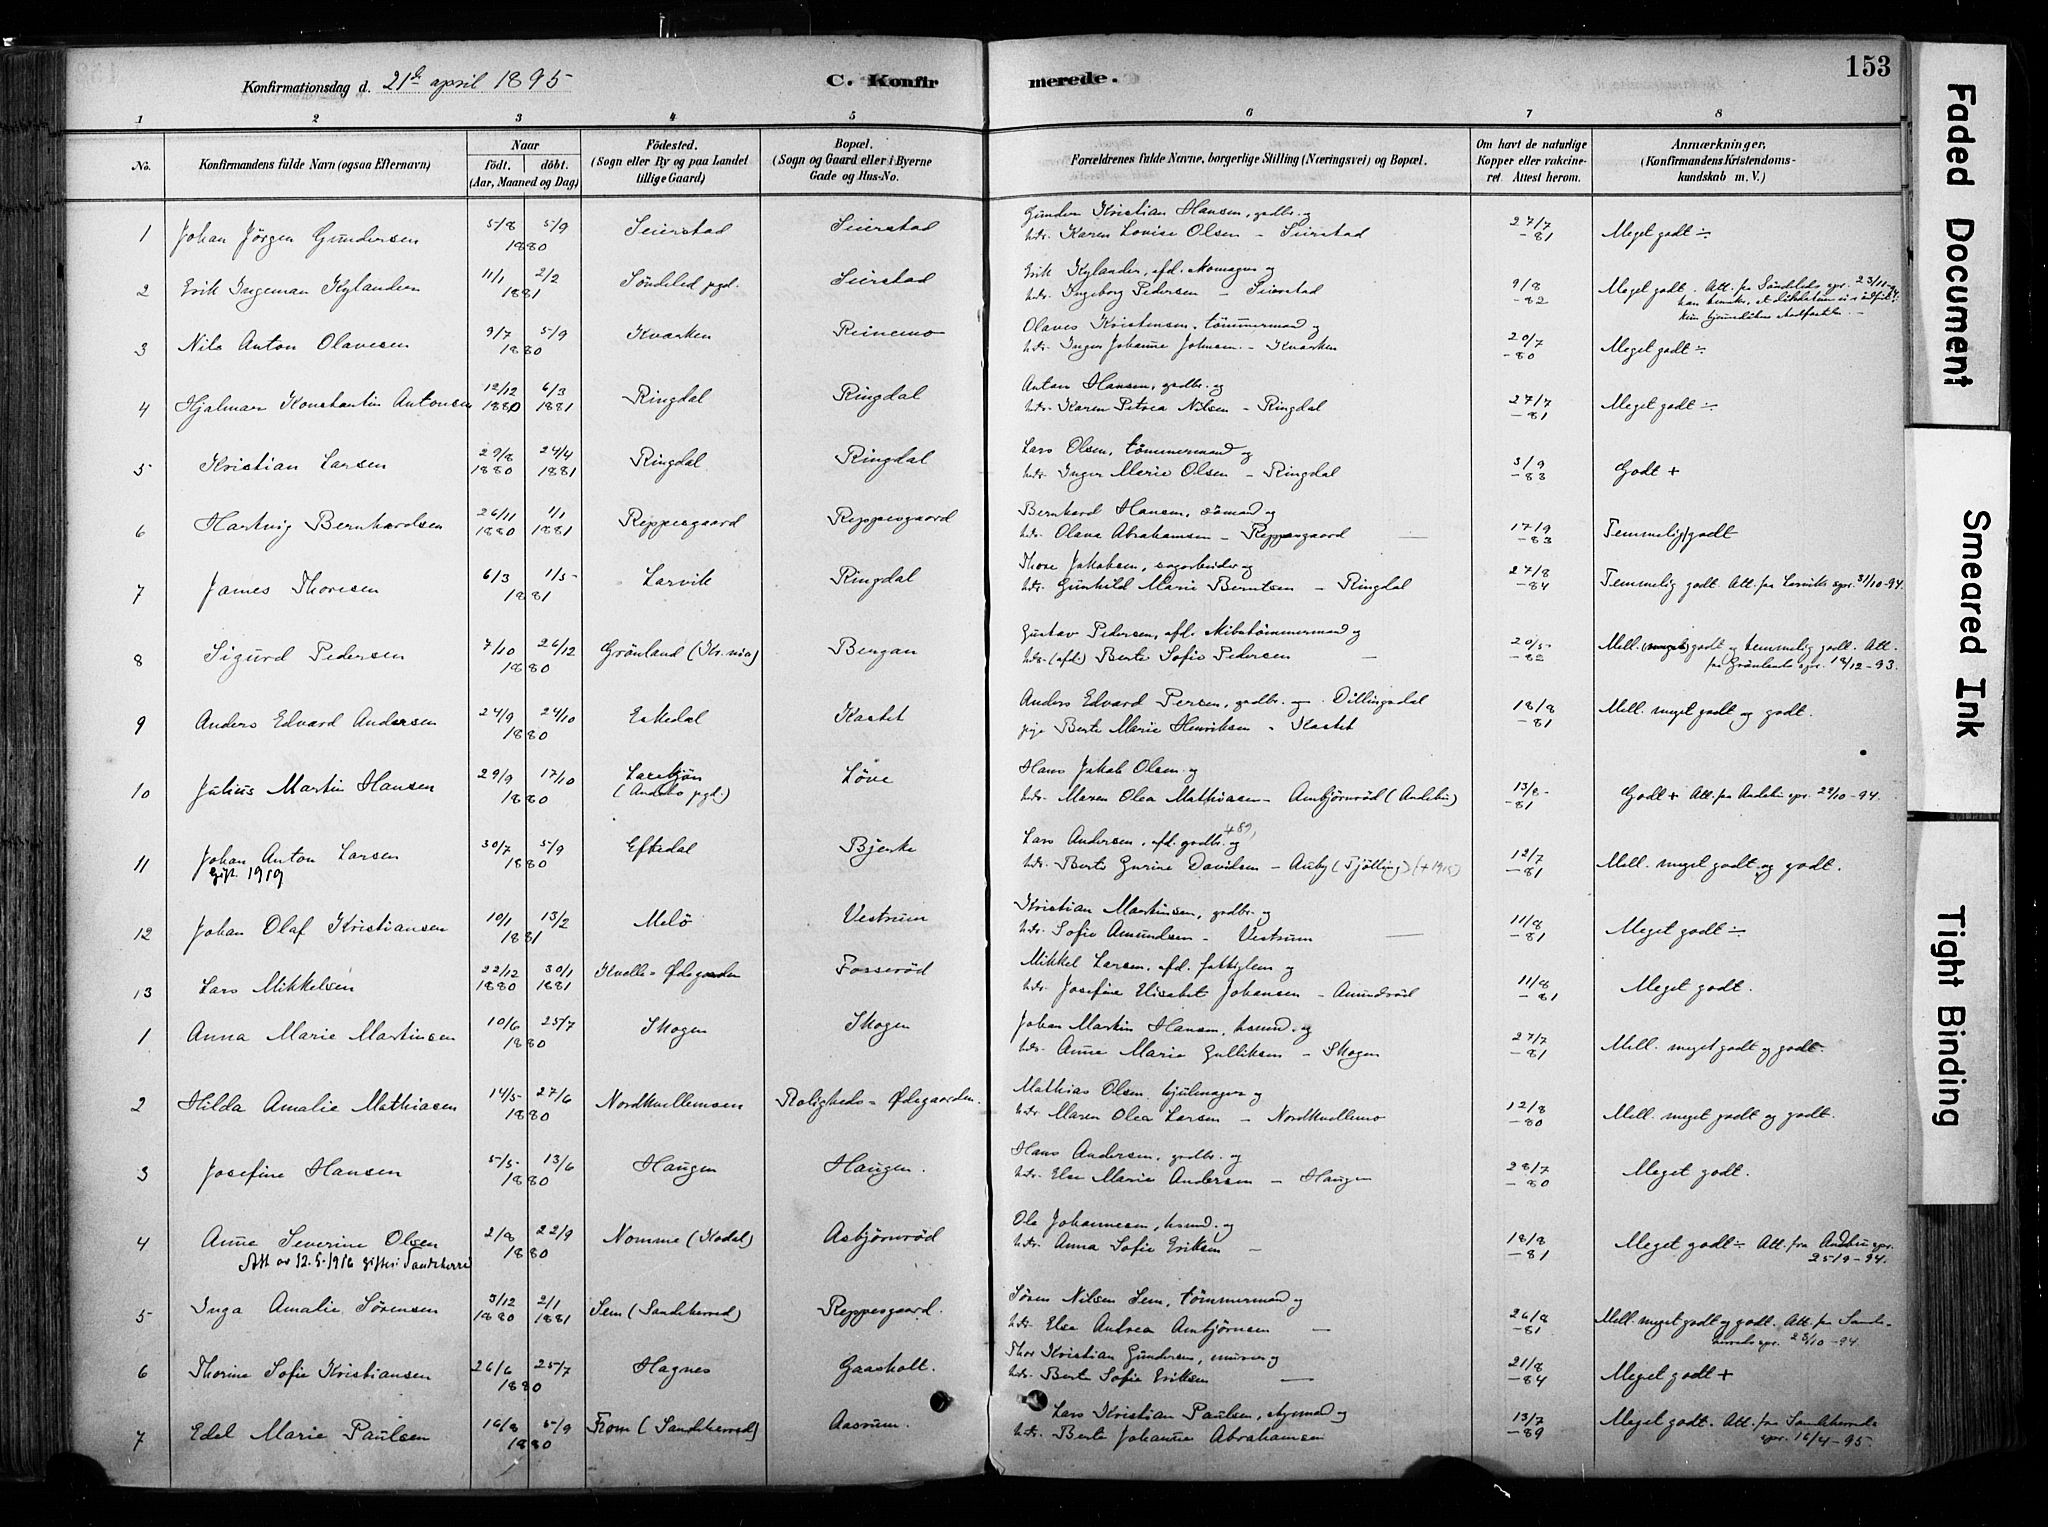 153
Konfirmationsdag d. 21de april 1895
C. Konfirmerede.
1 2 3 4 5 6 7 8
No. Konfirmandens fulde Navn (ogsaa Efternavn) Naar født. døbt. (Aar, Maaned og Dag) Fødested. (Sogn eller By og paa Landet tillige Gaard) Bopæl. (Sogn og Gaard eller i Byerne Gade og Hus-No. Forældrenes fulde Navne, borgerlige Stilling (Næringsvei) og Bopæl. Om havt de naturlige Kopper eller vakcineret. Attest herom. Anmærkninger, (Konfirmandens Kristendomskundskab m. V.)
1 Johan Jörgen Gundersen 5/8 5/9 1880 Seierstad Seierstad Gunder Kristian Hansen, gadbr. og
htr. Karen Lovise Olsen – Seierstad 27/7 –81 Meget godt ÷
2 Erik Ingeman Kylander 11/1 2/2 1881 Söndeled pgd. Seierstad Erik Kylander, afd. skomager og
htr. Ingeborg Pedersen – Seierstad 9/8 –82 Meget godt. Att. fra Söndeleds spr. 23/11
3 Nils Anton Olavesen 9/7 5/9 1880 Kvarken Reinemo Olaves Kristensen, tömmermand og
htr. Inger Johanne Johnsen – Kvarken 20/7 –80 Meget godt ÷
4 Hjalmar Konstantin Antonsen 12/12 1880 6/3 1881 Ringdal Ringdal Anton Hansen, gadbr. og
htr. Karen Petrea Nilsen – Ringdal 27/7 –81 Meget godt ÷
5 Kristian Larsen 29/8 1880 24/4 1881 Ringdal Ringdal Lars Olsen, tömmermand og
htr. Inger Marie Olsen – Ringdal 3/9 –83 Godt +
6 Hartvig Bernhardsen 26/11 1880 1/1 1881 Reppesgaard Reppesgaard Bernhard Hansen, sömand og
htr. Olava Abrahamsen – Reppesgaard – 17/9 –83 Temmelig godt
7 James Thoresen 6/3 1/5 1881 Larvik Ringdal Thore Jakobsen, sagarbeider og
htr. Gunhild Marie Berntsen – Ringdal 27/8 –84 Temmelig godt. Att. fra Larviks spr. 31/10–94.
8 Sigurd Pedersen 7/10 26/12 1880 Grönland (Kr.nia) Bergan Gustav Pedersen, afd. skibstömmermand og
htr. (afd.) Berte Sofie Pedersen – 20/5 –82 Mell. (meget) godt og temmelig godt. Att.
fra Grönlands spr. 18/12–93.
9 Anders Edvard Andersen 24/9 24/10 1880 Eskedal Kastet Anders Edvard Persen, gadbr. og – Dillingsdal
pige Berte Marie Henriksen – Kastet 18/8 –81 Mell. meget godt og godt.
10 Julius Martin Hansen 29/9 17/10 1880 (Andebo pgd.) Löve Hans Jakob Olsen og
htr. Maren Olea Mathiasen – Ambjörnröd (Andebu) 13/8 –81 Godt + Att. fra Andebu spr. 29/10–94.
11 Johan Anton Larsen 30/7 5/9 1880 Eftedal Bjerke Lars Andersen, afd. gadbr. og
Gift. 1919 htr. Berte Gurine Davidsen – Auby (Tjölling) (+1915) 12/7 –81 Mell. meget godt og godt.
12 Johan Olaf Kristiansen 10/1 13/2 1881 Melö Vestrum Kristian Martinsen, gadbr. og
htr. Sofie Amundsen – Vestrum – 11/8 –81 Meget godt ÷
13 Lars Mikkelsen 22/12 1880 30/1 1881 Kvelle-Ödegaarden Forseröd Mikkel Larsen, afd. fattiglem og
htr. Josefine Elisabet Johansen – Amundröd 11/8 –81 Meget godt.
1 Anna Marie Martinsen 10/6 25/7 1880 Skogen Skogen Johan Martin Hansen, husmd. og
htr. Anne Marie Gulliksen – Skogen 27/7 –81 Mell. meget godt og godt.
2 Hilda Amalie Mathiasen 14/5 27/6 1880 Nordkvellemoen Roligheds-Ödegaarden. Mathias Olsen hjulmager og
htr. Maren Olea Larsen – Nordkvellemo 12/8 –80 Mell. meget godt og godt.
3 Josefine Hansen 5/5 13/6 1880 Haugen Haugen. Hans Andersen, gadbr. og
htr. Else Marie Andersen – Haugen 28/7 –80 Meget godt.
4 Anne Severine Olsen 2/8 22/9 1880 Nomme (Kodal) Asbjörnröd Ole Johannesen, husmd. og
Att av 12.5.1916 giftes: Sandeherred htr. Anna Sofie Eriksen – 18/8 –81 Meget godt ÷ Att. fra Andebu spr.
25/9–94.
5 Inga Amalie Sørensen 3/12 1880 2/1 1881 Sem (Sandeherred) Reppesgaard. Sören Nilsen Sem, tömmermand og
htr. Else Andrea Ambjörnsen – 26/8 –81 Mell. meget godt og godt. Att. fra Sandeherreds spr. 23/10–94.
6 Thorine Sofie Kristiansen 26/6 25/7 1880 Hagnes Gaasholt. Thor Kristian Gundersen, murer og
htr. Berte Sofie Eriksen – 21/8 –84 Meget godt +
7 Edel Marie Paulsen 16/8 5/9 1880 From (Sandeherred) Aasrum. Lars Kristian Paulsen, styrmand og
htr. Berte Johanne Abrahamsen 13/7 –89 Meget godt. Att. fra Sandeherreds
spr. 16/4–95.
Faded Document
Smeared Ink
Tight Binding